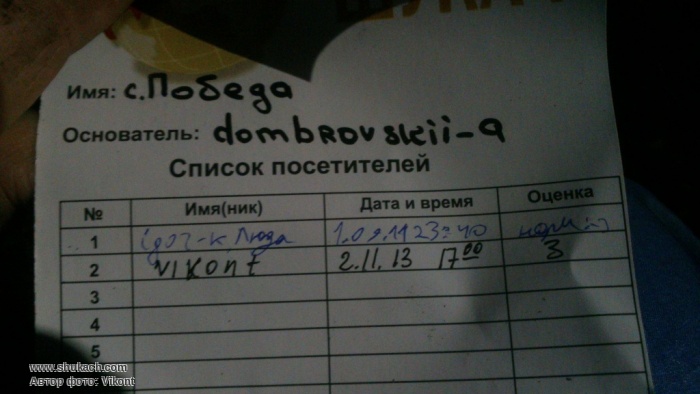 Имя: с.Победа
Основатель: dombrovskii-a
Список посетителей
№ Имя(ник) Дата и время Оценка
1 Люда
2 VIKONT 2.11.13 17 00 3
3
4
5
www.shukach.com
Автор фото: Vikont